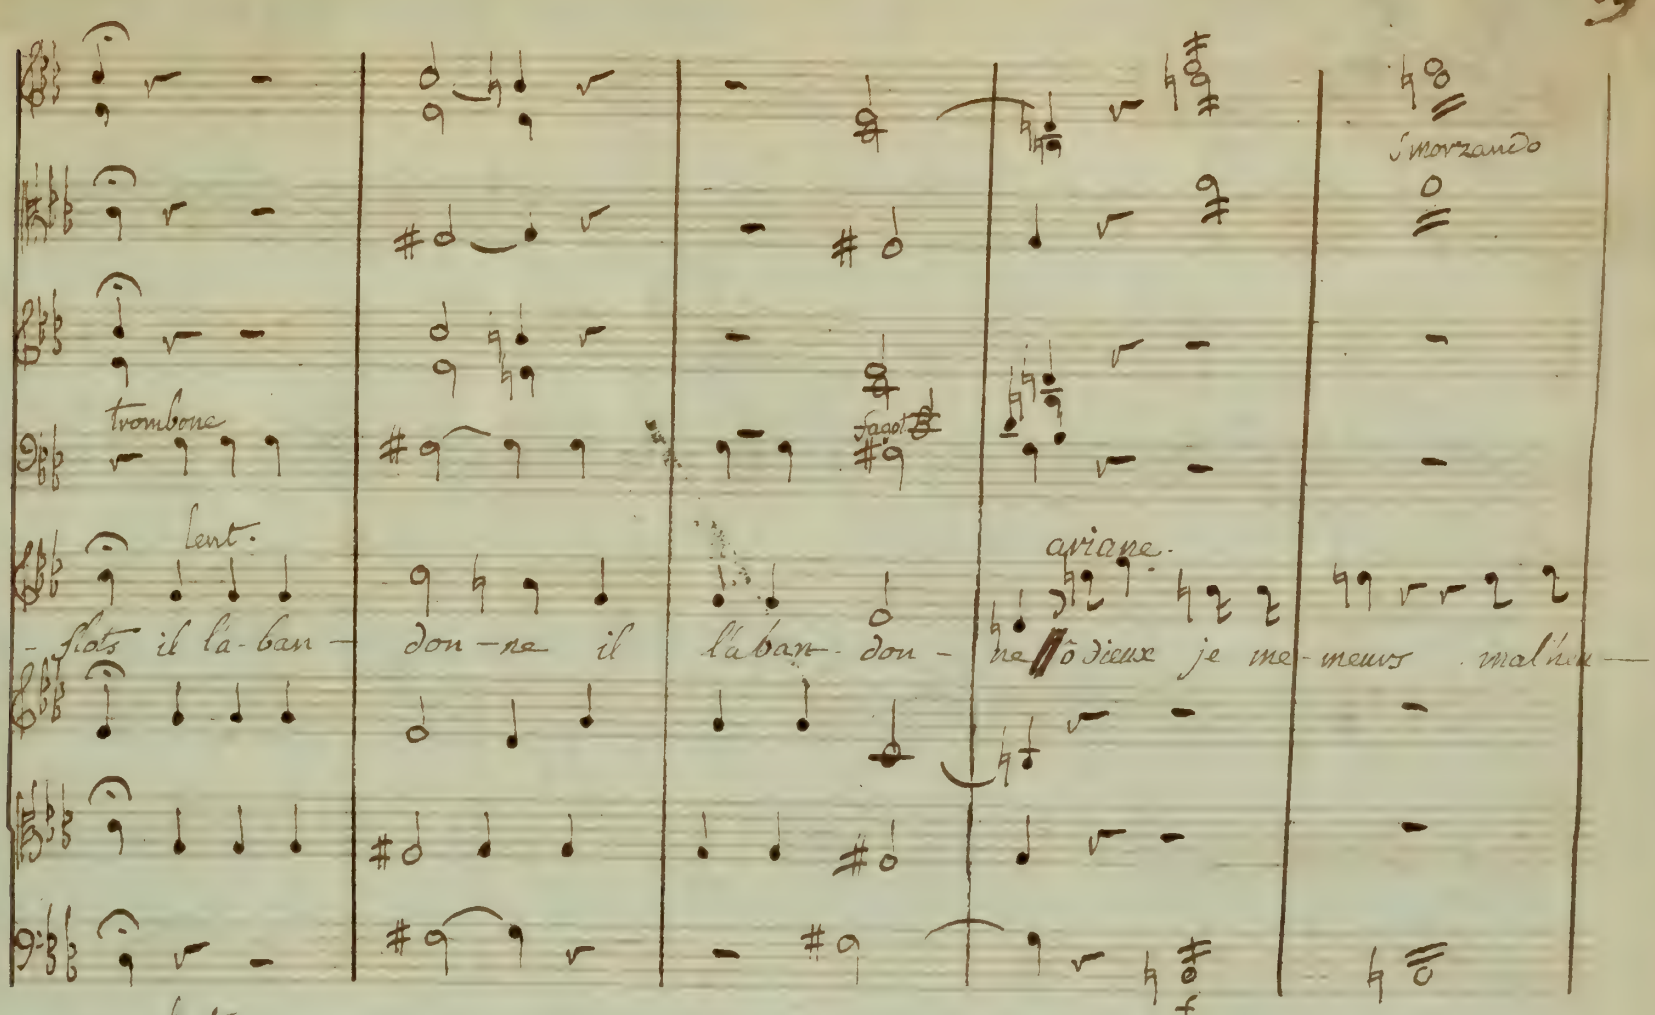 smorzando
trombone
fagot
lent.
ariane.
- flots il la-ban- don-ne il l'aban-don-ne ô dieux je me-meurs malheu-
f